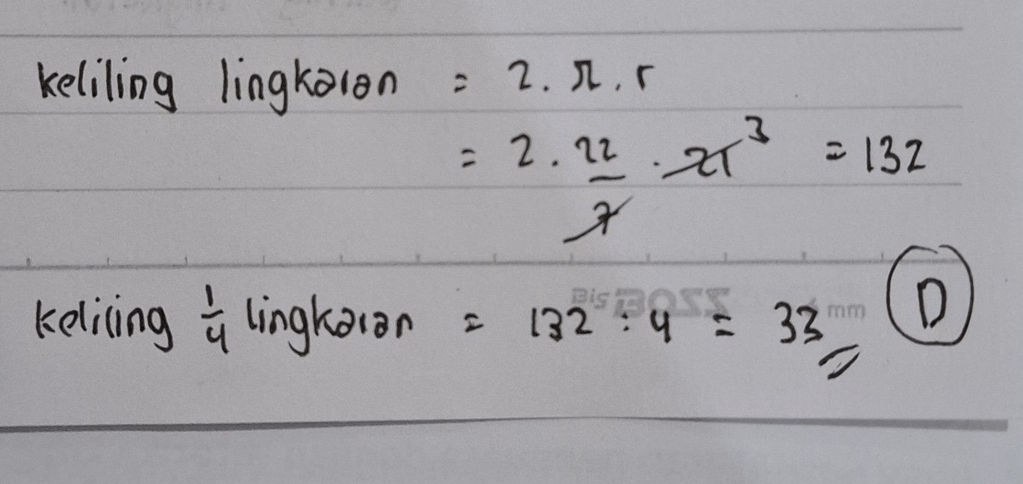 keliling lingkaran = 2. π. r
= 2. 22/7 . 21 3 = 132
keliling 1/4 lingkaran = 132 : 4 = 33 D
Bis BOSS mm